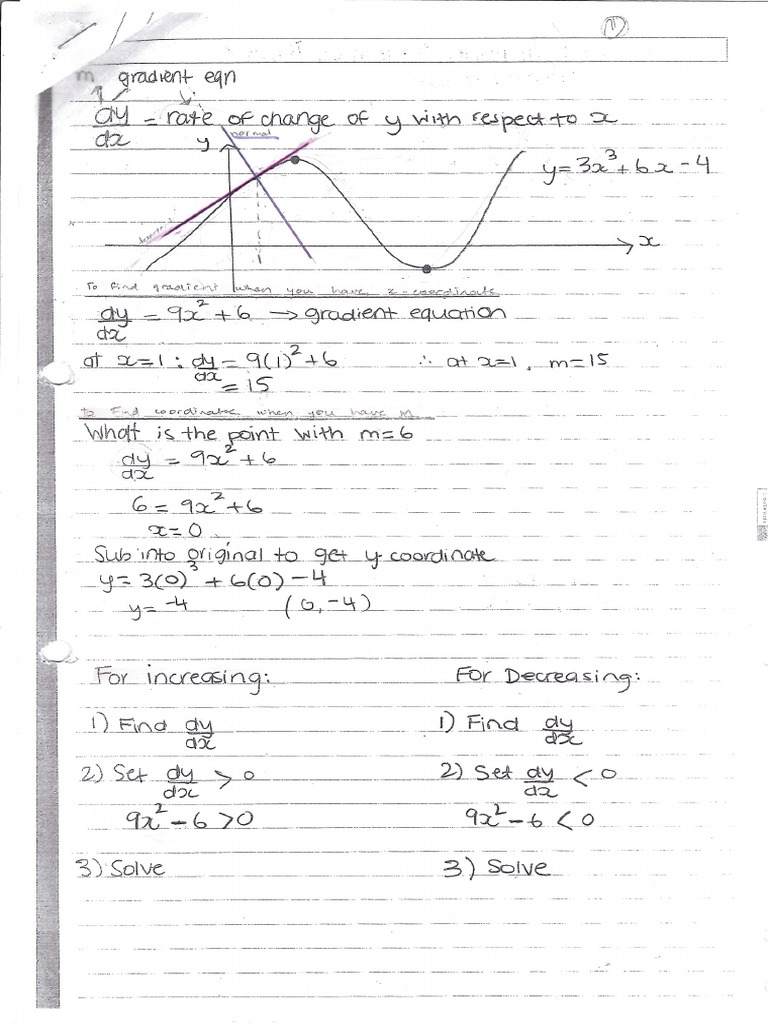 11
m gradient eqn
dy/dx = rate of change of y with respect to x
y normal
y = 3x³ + 6x - 4
x
To find gradient when you have x-coordinate
dy/dx = 9x² + 6 → gradient equation
at x=1 : dy/dx = 9(1)² + 6 ∴ at x=1, m=15
= 15
to find coordinates when you have m
What is the point with m=6
dy/dx = 9x² + 6
6 = 9x² + 6
x = 0
Sub into original to get y-coordinate
y = 3(0)³ + 6(0) - 4
y = -4 (0, -4)
For increasing: For Decreasing:
1) Find dy/dx 1) Find dy/dx
2) Set dy/dx > 0 2) Set dy/dx < 0
9x² - 6 > 0 9x² - 6 < 0
3) Solve 3) Solve